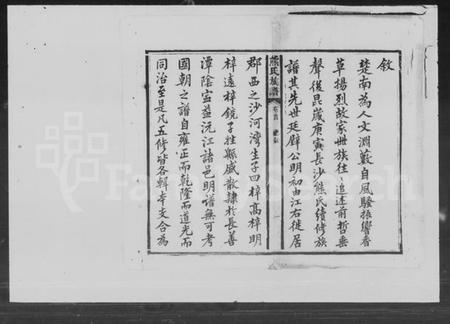 敘
楚南為人文淵藪自風騷振響香
草揚烈故家世族往往追述前哲垂
聲後昆歲庚寅長沙熊氏續修族
譜其先世廷辟公明初由江右徙居
熊氏族譜 卷首
郡西之沙河灣生子四梓高梓明
梓遠梓鏡子姓縣盛散隸於長善
潭陰寗益沅江諸邑明譜無可考
國朝之譜自雍正而乾隆而道光而
同治至是凡五修皆各輯本支合為
FamilySearch